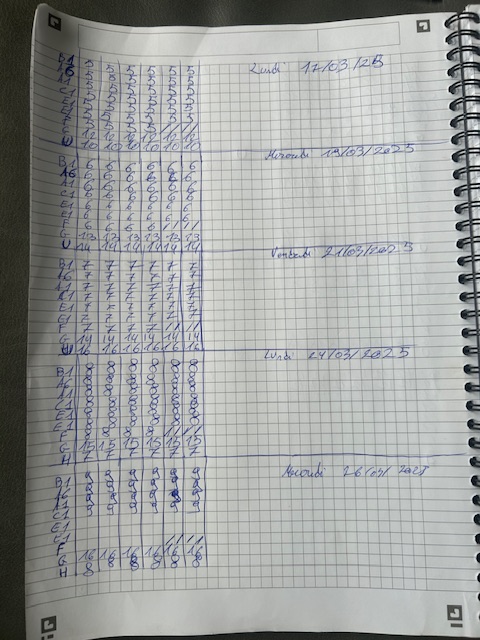 Lundi 17/03/25
B1 5 5 5 5 5 5
A6 5 5 5 5 5 5
A1 5 5 5 5 5 5
C1 5 5 5 5 5 5
E1 5 5 5 5 5 5
E1 5 5 5 5 5 5
F 5 5 5 5 / /
G 12 12 12 12 12 12
U 10 10 10 10 10 10
Mercredi 19/03/2025
B1 6 6 6 6 6 6
A6 6 6 6 6 6 6
A1 6 6 6 6 6 6
C1 6 6 6 6 6 6
E1 6 6 6 6 6 6
E1 6 6 6 6 6 6
F 6 6 6 6 / /
G 13 13 13 13 13 13
U 14 14 14 14 14 14
Vendredi 21/03/2025
B1 7 7 7 7 7 7
A6 7 7 7 7 7 7
A1 7 7 7 7 7 7
C1 7 7 7 7 7 7
E1 7 7 7 7 7 7
E1 7 7 7 7 7 7
F 7 7 7 7 / /
G 14 14 14 14 14 14
U 16 16 16 16 16 16
Lundi 24/03/2025
B1 8 8 8 8 8 8
A6 8 8 8 8 8 8
A1 8 8 8 8 8 8
C1 8 8 8 8 8 8
E1 8 8 8 8 8 8
E1 8 8 8 8 8 8
F 8 8 8 8 / /
G 15 15 15 15 15 15
H 7 7 7 7 7 7
Mercredi 26/03/2025
B1 9 9 9 9 9 9
A6 9 9 9 9 9 9
A1 9 9 9 9 9 9
C1 9 9 9 9 9 9
E1
E1
F / /
G 16 16 16 16 16 16
H 8 8 8 8 8 8